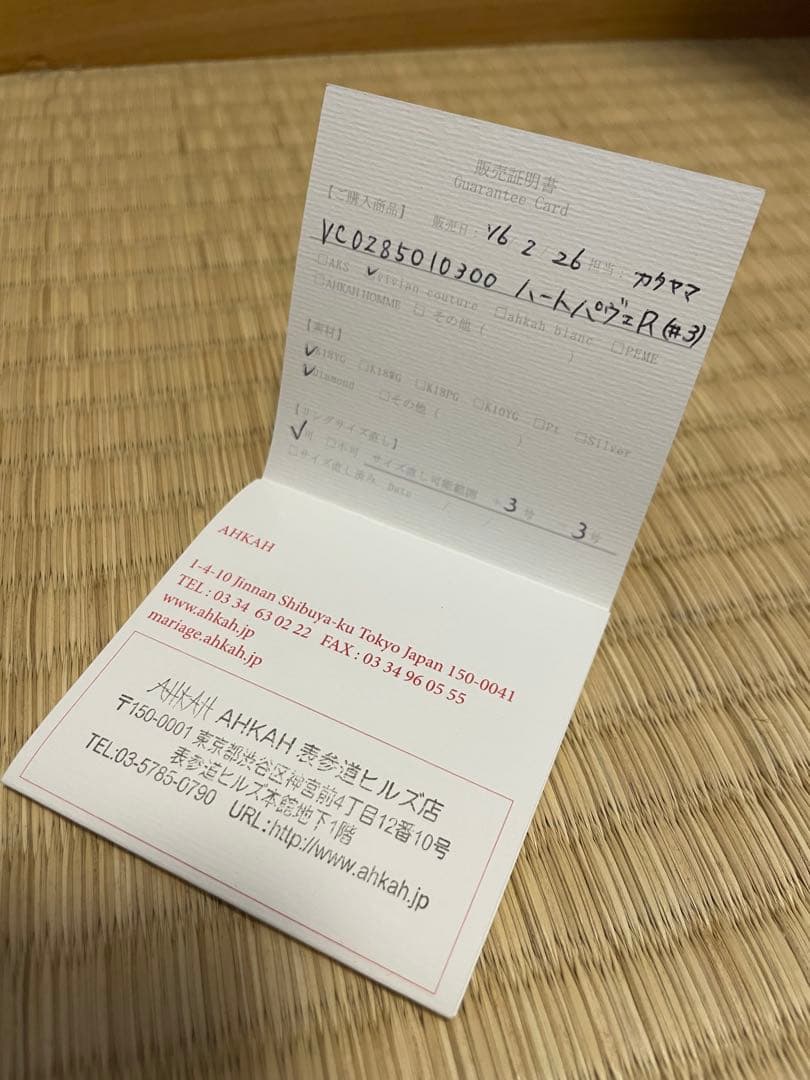 販売証明書
Guarantee Card
【ご購入商品】 販売日: '16 2 / 26 担当: カクヤマ
VC0285010300 ハートパヴェR(#3)
□AKS □vivian couture □ahkah blanc □PEME
□AHKAH HOMME □その他 ( )
【素材】
□K18YG □K18WG □K18PG □K10YG □Pt □Silver
□Diamond □その他 ( )
【リングサイズ直し】
□可 □不可 サイズ直し可能範囲 + 3 号 3 号
□サイズ直し済み Date / /
AHKAH
1-4-10 Jinnan Shibuya-ku Tokyo Japan 150-0041
TEL : 03 34 63 02 22 FAX : 03 34 96 05 55
www.ahkah.jp
mariage.ahkah.jp
AHKAH AHKAH 表参道ヒルズ店
〒150-0001 東京都渋谷区神宮前4丁目12番10号
表参道ヒルズ本館地下1階
TEL:03-5785-0790 URL:http://www.ahkah.jp